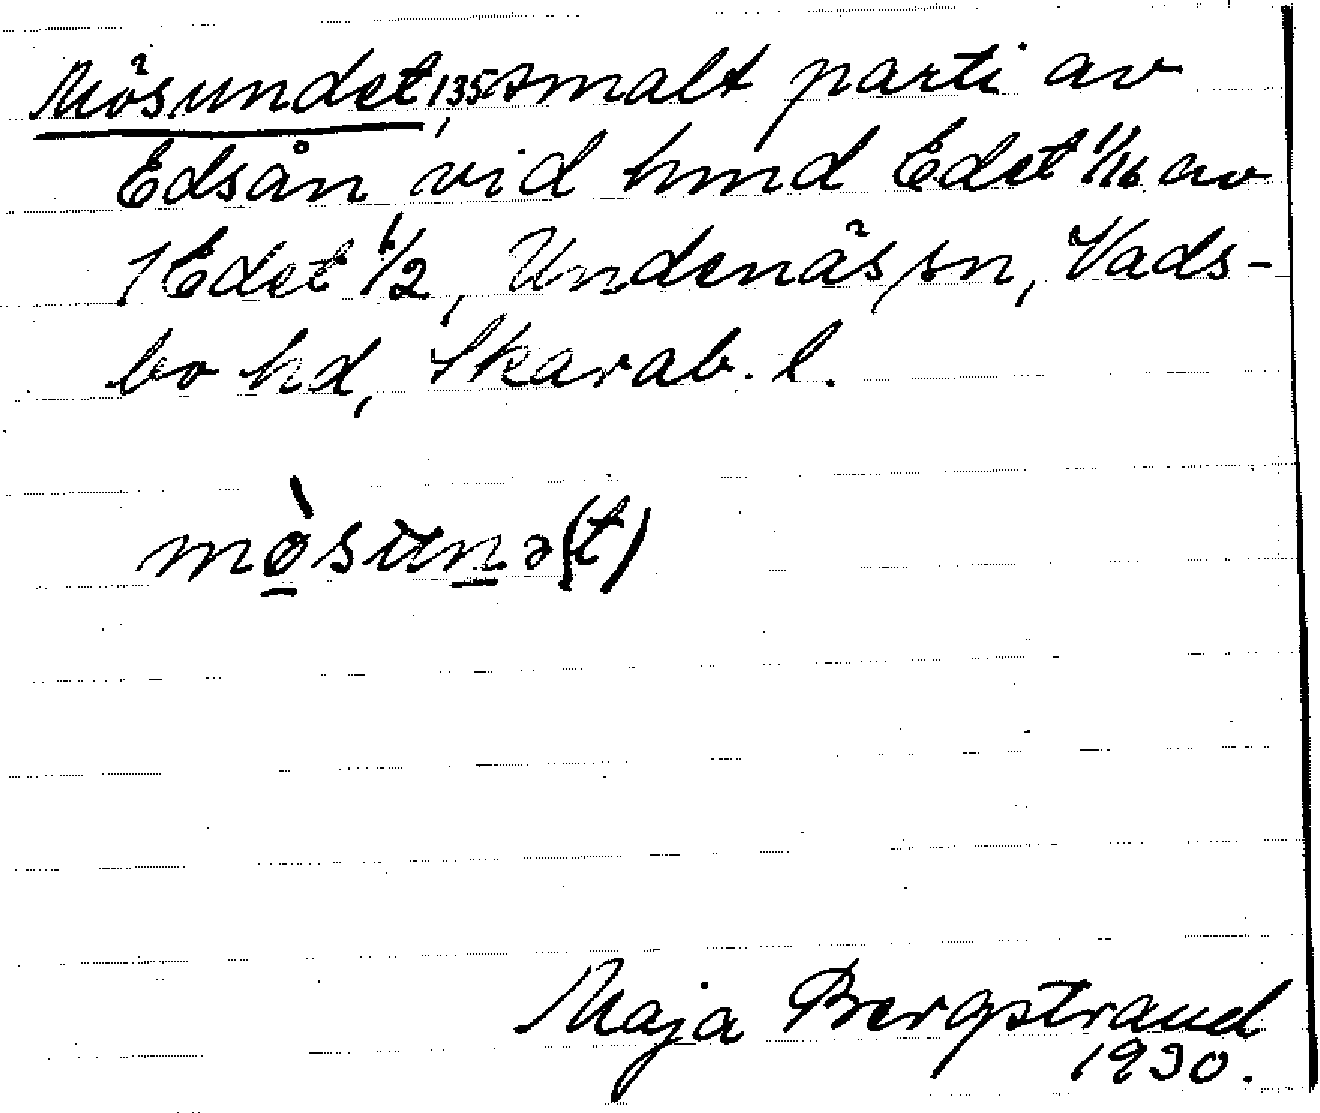 Mösundet, 135 smalt parti av
Edsån vid hmd Edet 1/16 av
1 Edet 1/2, Undenäs sn, Vads-
bo hd, Skarab. l.
mòsunə(t)
Maja Bergstrand
1930.